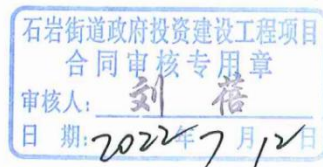 石岩街道政府投资建设工程项目
合同审核专用章
审核人：刘蓓
日期：2022年7月12日